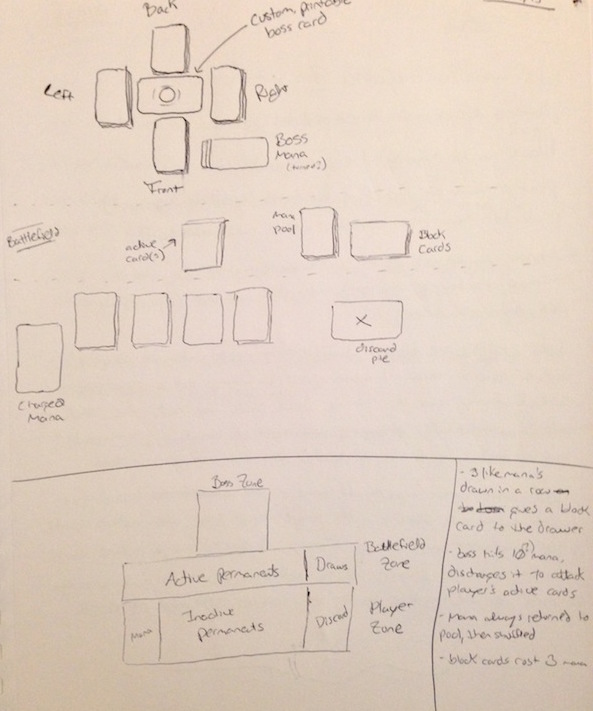 Back
Custom, printable
boss card
Left
Right
Boss
Mana
Front
Battlefield
active
card(s)
mana
pool
Block
Cards
X
discard
pile
Charged
Mana
Boss Zone
Battlefield
Zone
Active permanents
Draws
Player
Zone
Mana
Inactive
permanents
Discard
- 3 like mana's
drawn in a row
gives a block
card to the drawer
- boss hits 10 mana,
discharges it to attack
player's active cards
- Mana always returned to
pool, then shuffled
- block cards cost 3 mana